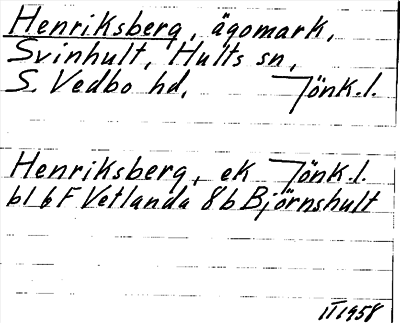 Henriksberg, ägomark,
Svinhult, Hults sn,
S. Vedbo hd, Jönk.l.
Henriksberg, ek Jönk.l.
bl 6F Vetlanda 8b Björnshult
II 1958